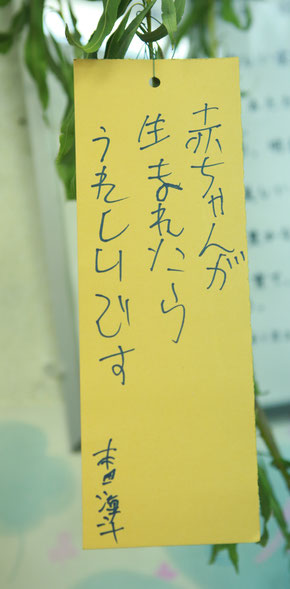 赤ちゃんが
生まれたら
うれしいです